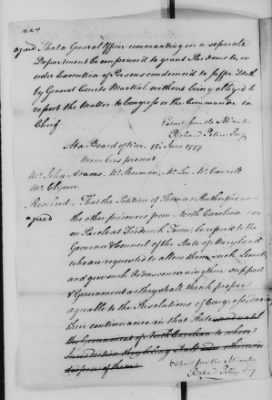 424
agreed That a General Officer commanding on a separate
Department be empowered to grant Pardons to or
order Execution of Persons condemned to suffer Death
by General Courts Martial without being obliged to
report the Matter to Congress or the Commander in
Chief
Extract from the Minutes
Richard Peters Secy
At a Board of War 18 June 1777
Members present
Mr John Adams, Mr Sherman, Mr
Mr Clymer
Resolved, That the Petition of Thomas Rutherford &
agreed the other prisoners from North Carolina now
on Parole at Frederick Town be referred to the
Governor & Council of the State of Maryland
who are requested to allow them such
and give such Orders concerning their support
& Government as they shall think proper
agreeable to the Resolutions of Congress during
their continuance in that State and until
the Government of North Carolina to whose
Jurisdiction they belong shall
dispose of them
Extract from the Minutes
Richard Peters Secy